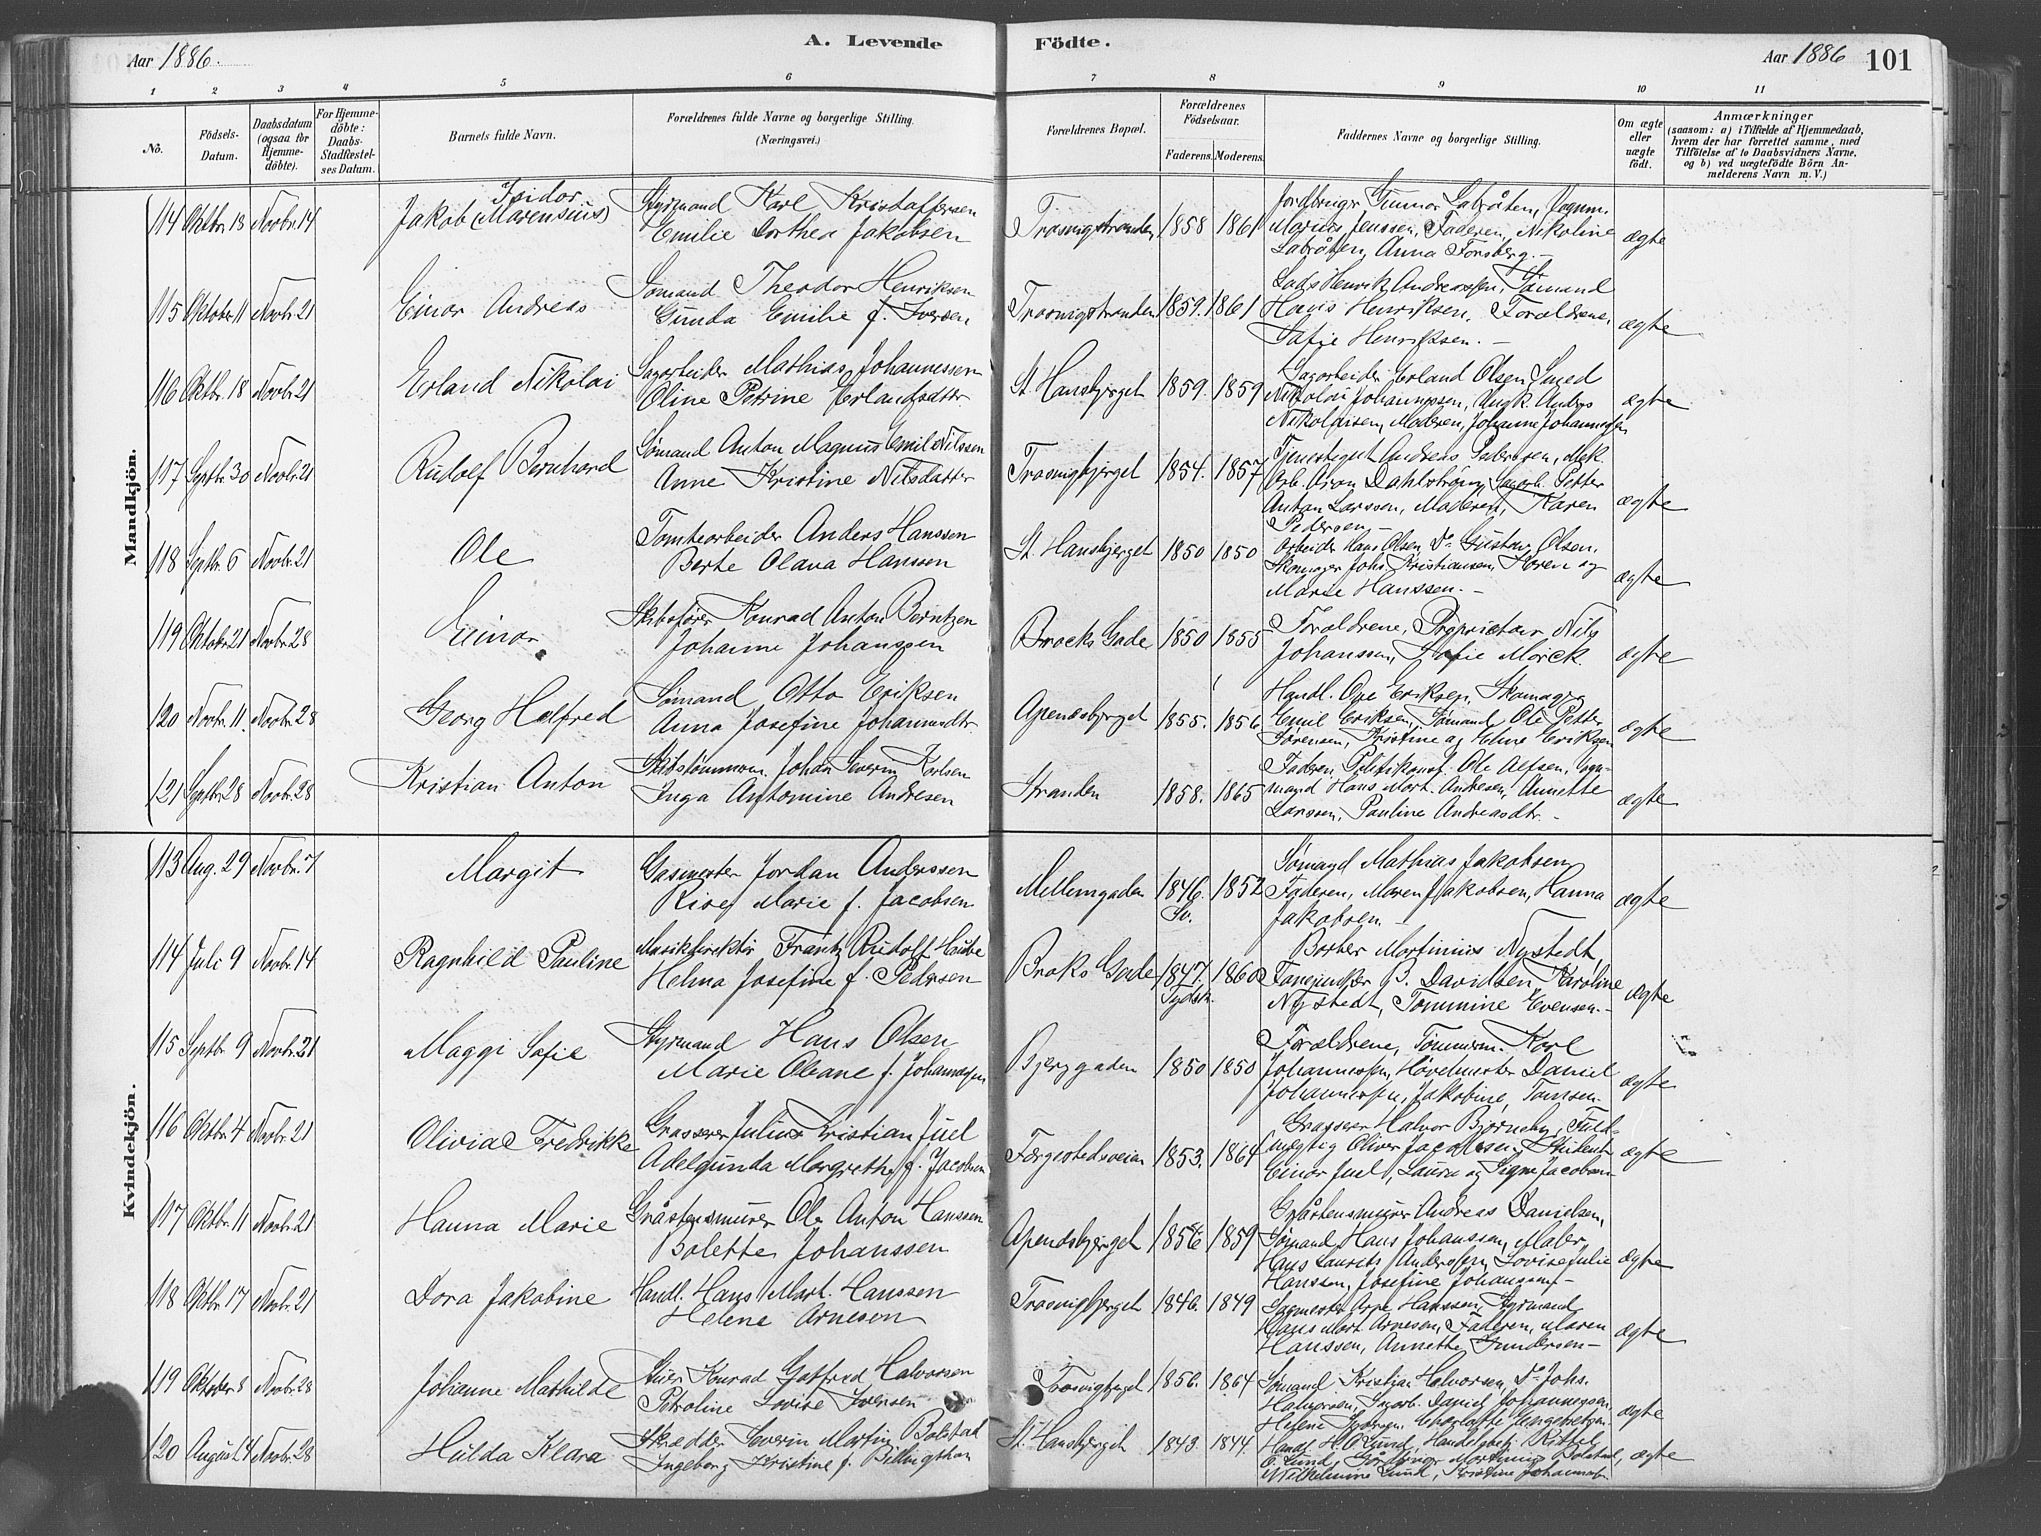 Aar 1886.
A. Levende Födte.
Aar 1886 101
1 2 3 4 5 6 7 8 9 10 11
No.
Födsels-Datum.
Daabsdatum (ogsaa för Hjemme-döbte).
For Hjemme-döbte: Daabs-Stadfæstel-ses Datum.
Barnets fulde Navn.
Forældrenes fulde Navne og borgerlige Stilling. (Næringsvei.)
Forældrenes Bopæl.
Forældrenes Födselsaar.
Faderens. Moderens.
Faddernes Navne og borgerlige Stilling.
Om ægte eller uægte födt.
Anmærkninger
(saasom: a) i Tilfælde af Hjemmedaab,
hvem der har forrettet samme, med
Tilföielse af to Daabsvidners Navne,
og b) ved uægtefödte Börn An-
melderens Navn m. V.)
Mandkjön.
114 Oktbr. 13 Novbr. 14 Jakob (Marensius) Isidor
Styrmand Karl Kristoffersen
Emilie Dorthea Jakobsen
Trosvigstranden 1858 1861
Jordbruger Gunnar Labråten, Vognm.
Marius Jenssen, Faderen, Nikoline
Labråten, Anna Forsberg. ægte
115 Oktober 11 Novbr. 21 Einar Andreas
Sømand Theodor Henriksen
Gunda Emilie f. Iversen
Trosvigstranden 1859. 1861
Lods Henrik Andreassen, Sømand
Hans Henriksen, Forældrene,
Sofie Henriksen. ægte
116 Oktbr. 18 Novbr. 21 Erland Nikolai
Sagarbeider Mathias Johannessen
Oline Petrine Erlandsdttr.
St. Hansbjerget 1859. 1859
Sagarbeider Erland Olsen, Smed
Nikolai Johannessen, Anders
Nikolaisen, Moderen, Johanne Johannessen ægte
117 Septbr. 30 Novbr. 21 Rudolf Bernhard
Sømand Anton Magnus Emil Nilssen
Anne Kristine Nilsdatter
Trosvigbjerget 1854. 1857
Tjenestegut Andreas Pedersen, Mek.
Arb. Oscar Dahlstrøm, Sagarb. Petter
Anton Larssen, Moderen, Karen
Pedersen. ægte
118 Septbr. 6 Novbr. 21 Ole
Tomtearbeider Anders Hanssen
Berte Olava Hanssen
St. Hansbjerget 1850 1850
Arbeider Hans Olsen, Do Gustav Olsen,
Skomager Johs. Kristiansen, Karen og
Marie Hanssen. ægte
119 Oktobr. 21 Novbr. 28 Einar
Skibsfører Konrad Anton Berntzen
Johanne Johanssen
Brocks Gade 1850 1855
Forældrene, Proprietær Nils
Johanssen, Sofie Mørck. ægte
120 Novbr. 11. Novbr. 28 Georg Halfred
Sømand Otto Eriksen
Anna Josefine Johannesdtr.
Apenæsbjerget 1855. 1856
Handl. Ole Eriksen, Skomager
Emil Eriksen, Sømand Ole Petter
Sørensen, Kristine og Eline Eriksen ægte
121 Septbr. 28 Novbr. 28 Kristian Anton
Skibstømmerm. Johan Severin Karlsen
Inga Antomine Andresen
Stranden 1858. 1865
Faderen, Politikonst. Ole Alfsen, Vogn-
mand Hans Mort. Andresen, Annette
Larssen, Pauline Andreasdtr. ægte
Kvindekjön.
113 Aug. 29 Novbr. 7 Margit
Gasmester Jordan Anderssen
Rise Marie f. Jacobsen
Mellemgaden 1846. Sv. 1852
Sømand Mathias Jakobsen,
Faderen, Maren Jakobsen, Hanna
Jakobsen. ægte
114 Juli 9 Novbr. 14 Ragnhild Pauline
Musikdirektør Frantz Rudolf Haube
Helma Josefine f. Pedersen
Broks Gade 1847. Tydsk. 1860
Barber Martinius Nystedt,
Davidsen, Karoline
Nystedt, Tommine Evensen. ægte
115 Septbr. 9 Novbr. 21 Maggi Sofie
Styrmand Hans Olsen
Marie Oleane f. Johannessen
Bjerggaden 1850 1850
Forældrene, Tømmerm. Karl
Johannessen, Høvelmester Daniel
Johannessen, Jakobine Tomsen. ægte
116 Oktbr. 4 Novbr. 21 Olivia Fredrikke
Grosserer Julius Kristian Juel
Adelgunda Margrethe f. Jacobsen
Færgestedsveien 1853. 1864
Grosserer Halvor Bjørneby, Fuld-
mægtig Oliver Jacobsen, Student
Einar Juel, Laura og Signe Jacobsen ægte
117 Oktbr. 11 Novbr. 21 Hanna Marie
Gråstensmurer Ole Anton Hanssen
Bolette Johanssen
Apenæsbjerget 1856 1859
Gråstensmurer Andreas Danielsen,
Sømand Hans Johanssen, Maler
Hans Laurits Andersen, Lovise Julie
Hanssen, Josefine Johanssen. ægte
118 Oktbr. 17 Novbr. 21 Dora Jakobine
Handl. Hans Mart. Hanssen
Helene Arnesen
Trosvigbjerget 1846. 1849
Sagmester Arne Hanssen, Styrmand
Hans Mart. Arnesen, Faderen, Maren
Hanssen, Annette Gundersen ægte
119 Oktober 8 Novbr. 28 Johanne Mathilde
Konrad Gotfred Halvorsen
Petroline Lovise Iversen
Trosvigbjerget 1856. 1864
Sømand Kristian Halvorsen, Do Johs.
Halvorsen, Sagarb. Daniel Johannessen,
Helene Charlotte Engebretsen ægte
120 August 4 Novbr. 28 Hulda Klara
Skrædder Severin Martin Bolstad
Ingeborg Kristine f. Billingstad
St. Hansbjerget 1843. 1844
Handl. H. O. Lund,
E. Lund, Martinius Bolstad,
Wilhelmine Lund, Kristine Johannesen ægte